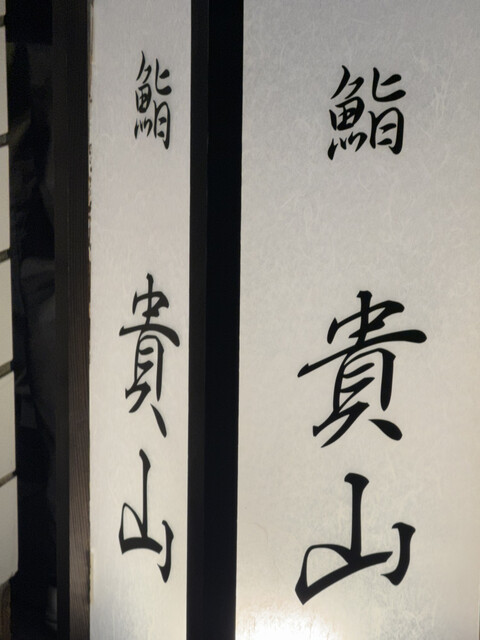 鮨 貴山
鮨 貴山